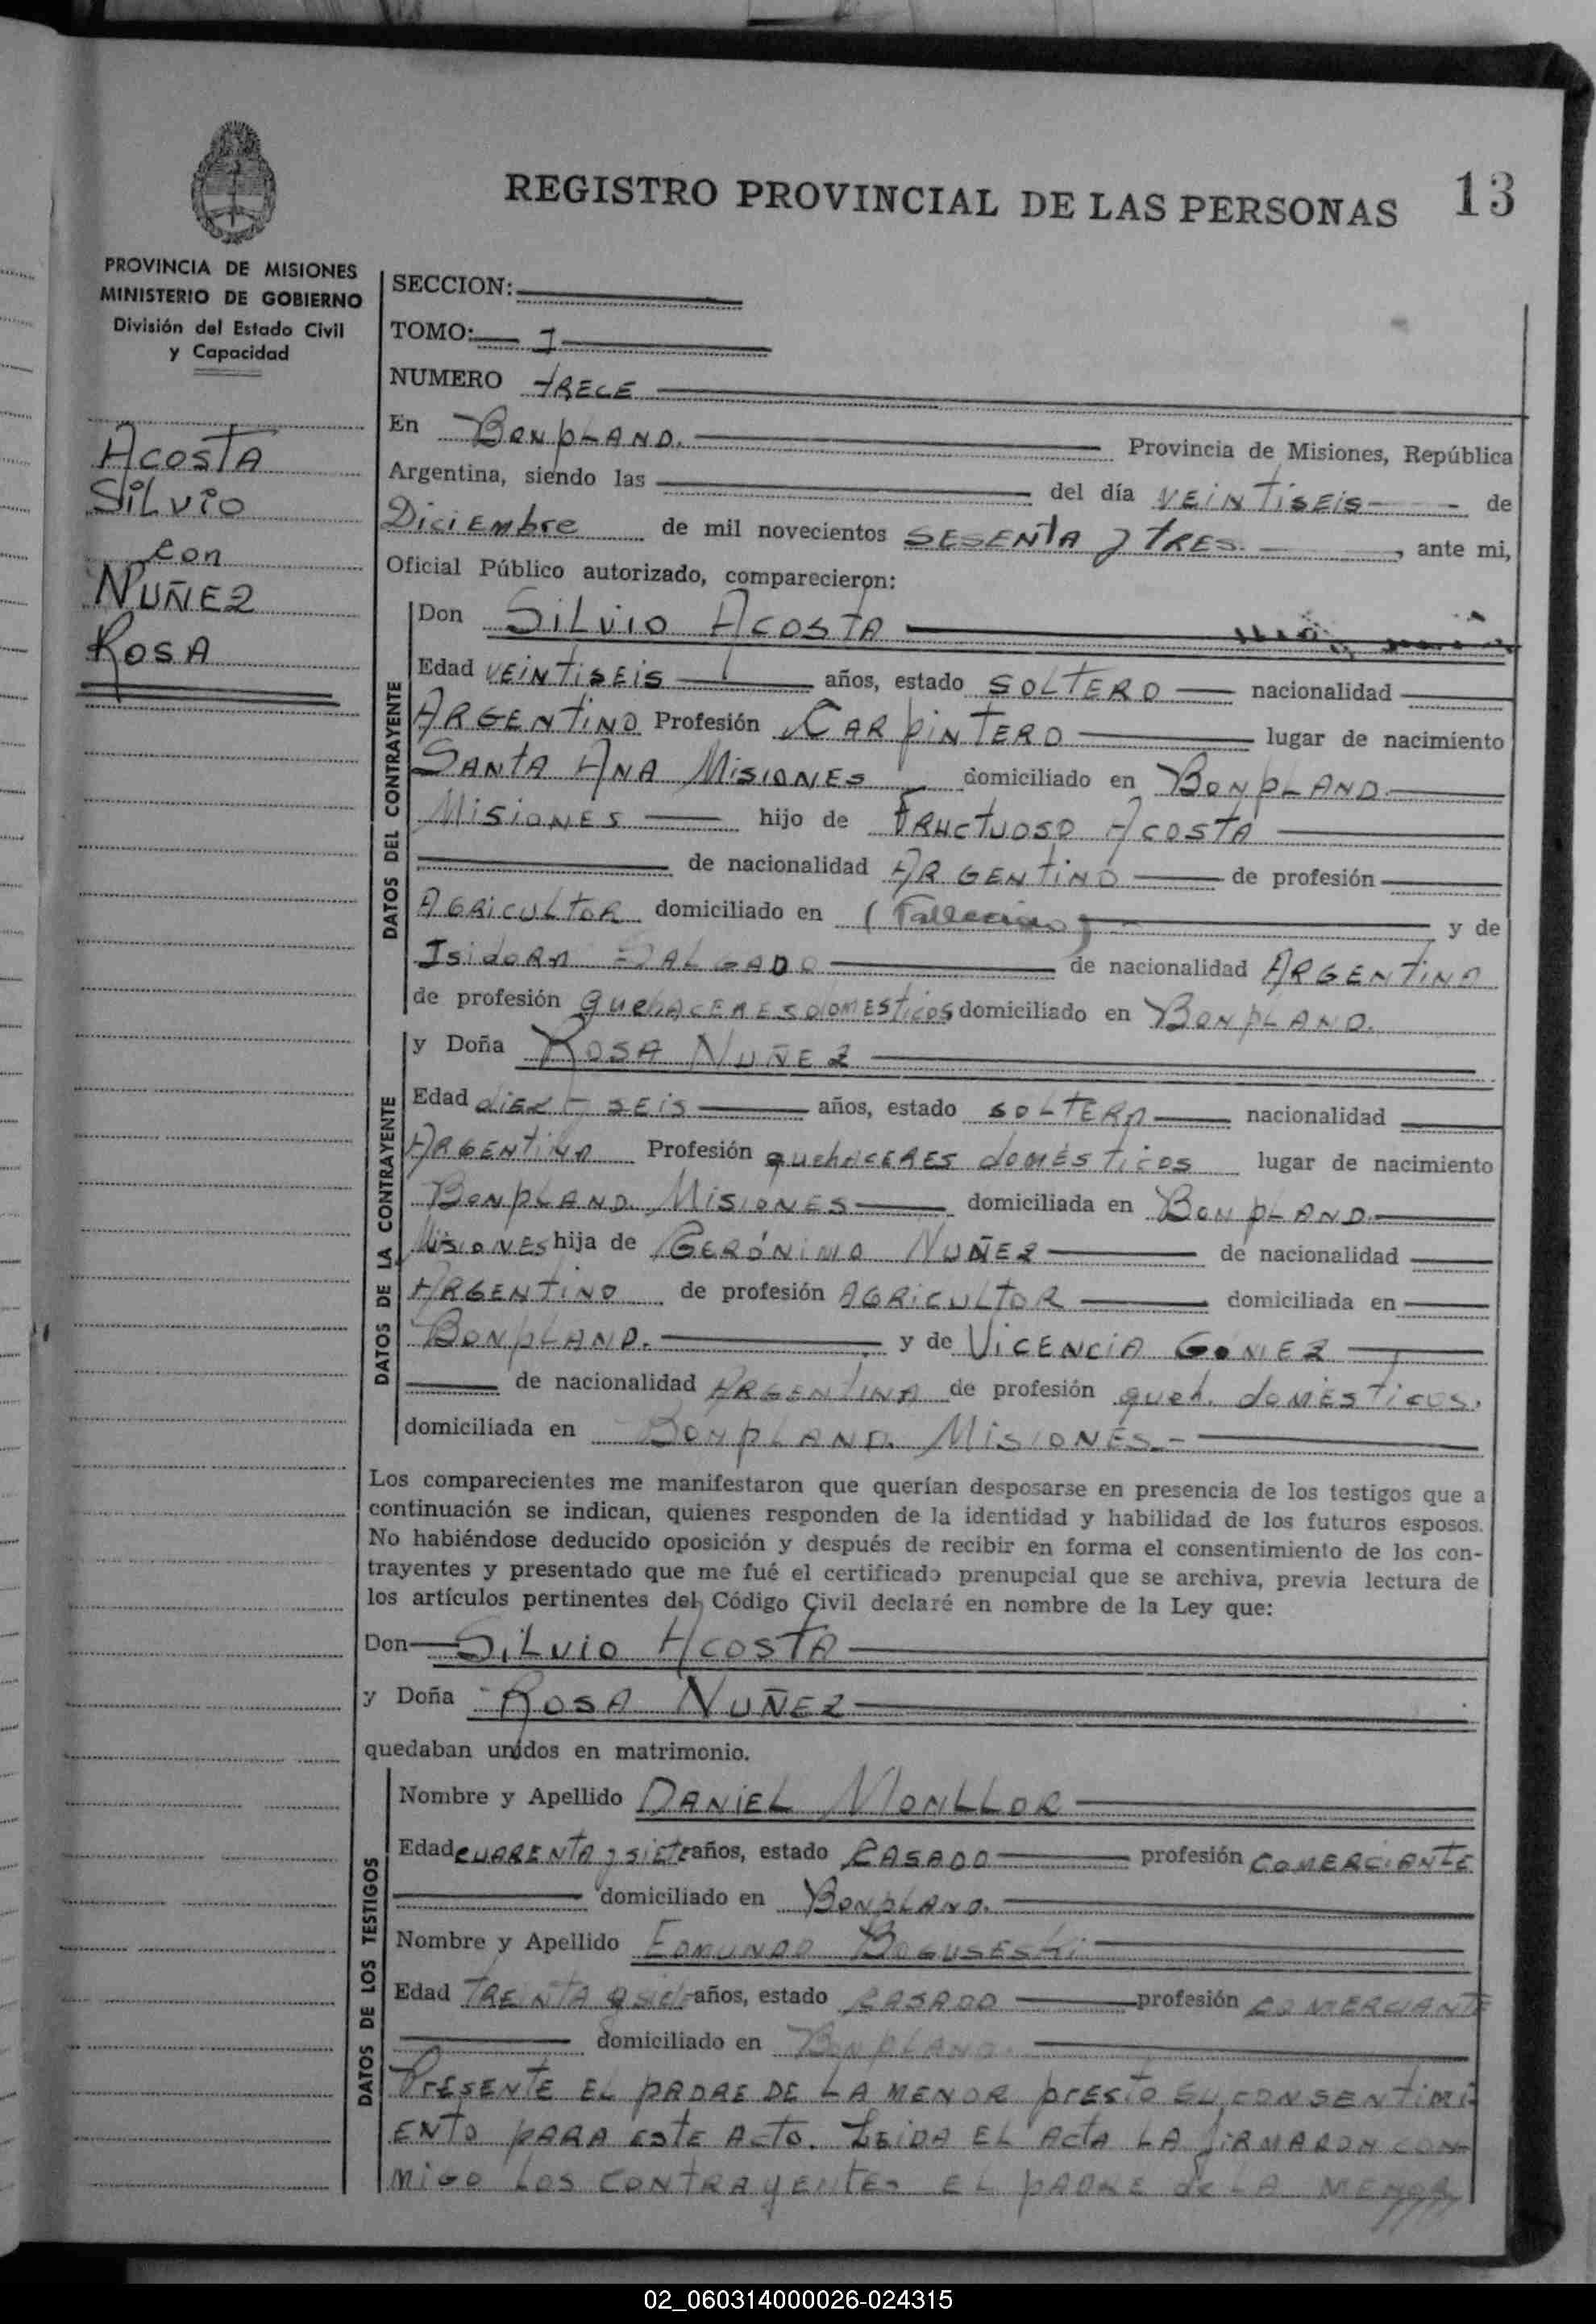 REGISTRO PROVINCIAL DE LAS PERSONAS 13
PROVINCIA DE MISIONES
MINISTERIO DE GOBIERNO
División del Estado Civil
y Capacidad
Acosta
Silvio
con
Nuñez
Rosa
SECCION:
TOMO: I
NUMERO trece
En Bonpland. Provincia de Misiones, República
Argentina, siendo las del día veintiseis de
Diciembre de mil novecientos sesenta y tres. , ante mi,
Oficial Público autorizado, comparecieron:
DATOS DEL CONTRAYENTE
Don Silvio Acosta
Edad veintiseis años, estado soltero nacionalidad
Argentino Profesión Carpintero lugar de nacimiento
Santa Ana Misiones domiciliado en Bonpland.
Misiones hijo de Fructuoso Acosta
de nacionalidad Argentino de profesión
Agricultor domiciliado en (Fallecido) y de
Isidora Salgado de nacionalidad Argentina
de profesión quehaceres domesticos domiciliado en Bonpland.
DATOS DE LA CONTRAYENTE
y Doña Rosa Nuñez
Edad diez y seis años, estado soltera nacionalidad
Argentina Profesión quehaceres domésticos lugar de nacimiento
Bonpland. Misiones domiciliada en Bonpland.
Misiones hija de Gerónimo Nuñez de nacionalidad
Argentino de profesión Agricultor domiciliada en
Bonpland. y de Vicencia Gómez
de nacionalidad Argentina de profesión queh. domésticos.
domiciliada en Bonpland. Misiones.-
Los comparecientes me manifestaron que querían desposarse en presencia de los testigos que a
continuación se indican, quienes responden de la identidad y habilidad de los futuros esposos.
No habiéndose deducido oposición y después de recibir en forma el consentimiento de los con-
trayentes y presentado que me fué el certificado prenupcial que se archiva, previa lectura de
los artículos pertinentes del Código Civil declaré en nombre de la Ley que:
Don Silvio Acosta
y Doña Rosa Nuñez
quedaban unidos en matrimonio.
DATOS DE LOS TESTIGOS
Nombre y Apellido Daniel Monllor
Edad cuarenta y siete años, estado casado profesión comerciante
domiciliado en Bonpland.
Nombre y Apellido Edmundo Boguseski
Edad treinta y siete años, estado casado profesión comerciante
domiciliado en Bonpland.
Presente el padre de la menor presto su consentimi
ento para este acto. Leida el acta la firmaron con
migo los contrayentes el padre de la menor
02_060314000026-024315